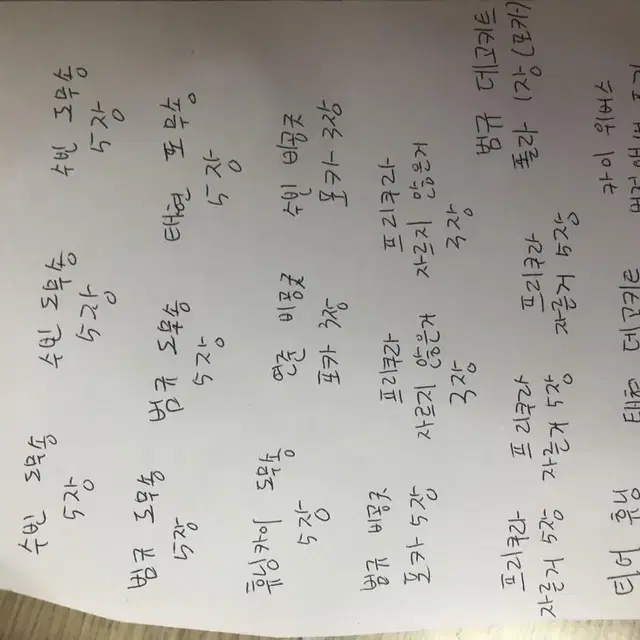 수빈 도무송
5장
수빈 도무송
5장
수빈 도무송
5장
범규 도무송
5장
범규 도무송
5장
태현 포무송
5장
휴닝카이 도무송
5장
연준 비공굿
포카 3장
수빈 비공굿
포카 3장
범규 비공굿
포카 5장
프리쿠라
자르지 않은거
3장
프리쿠라
자르지 않은거
3장
프리쿠라
자른거 5장
프리쿠라
자른거 5장
프리쿠라
자른거 5장
범규 데코키트
폴라 1장(포카)
티어 휴닝
태현 데코키트
카이 위버스